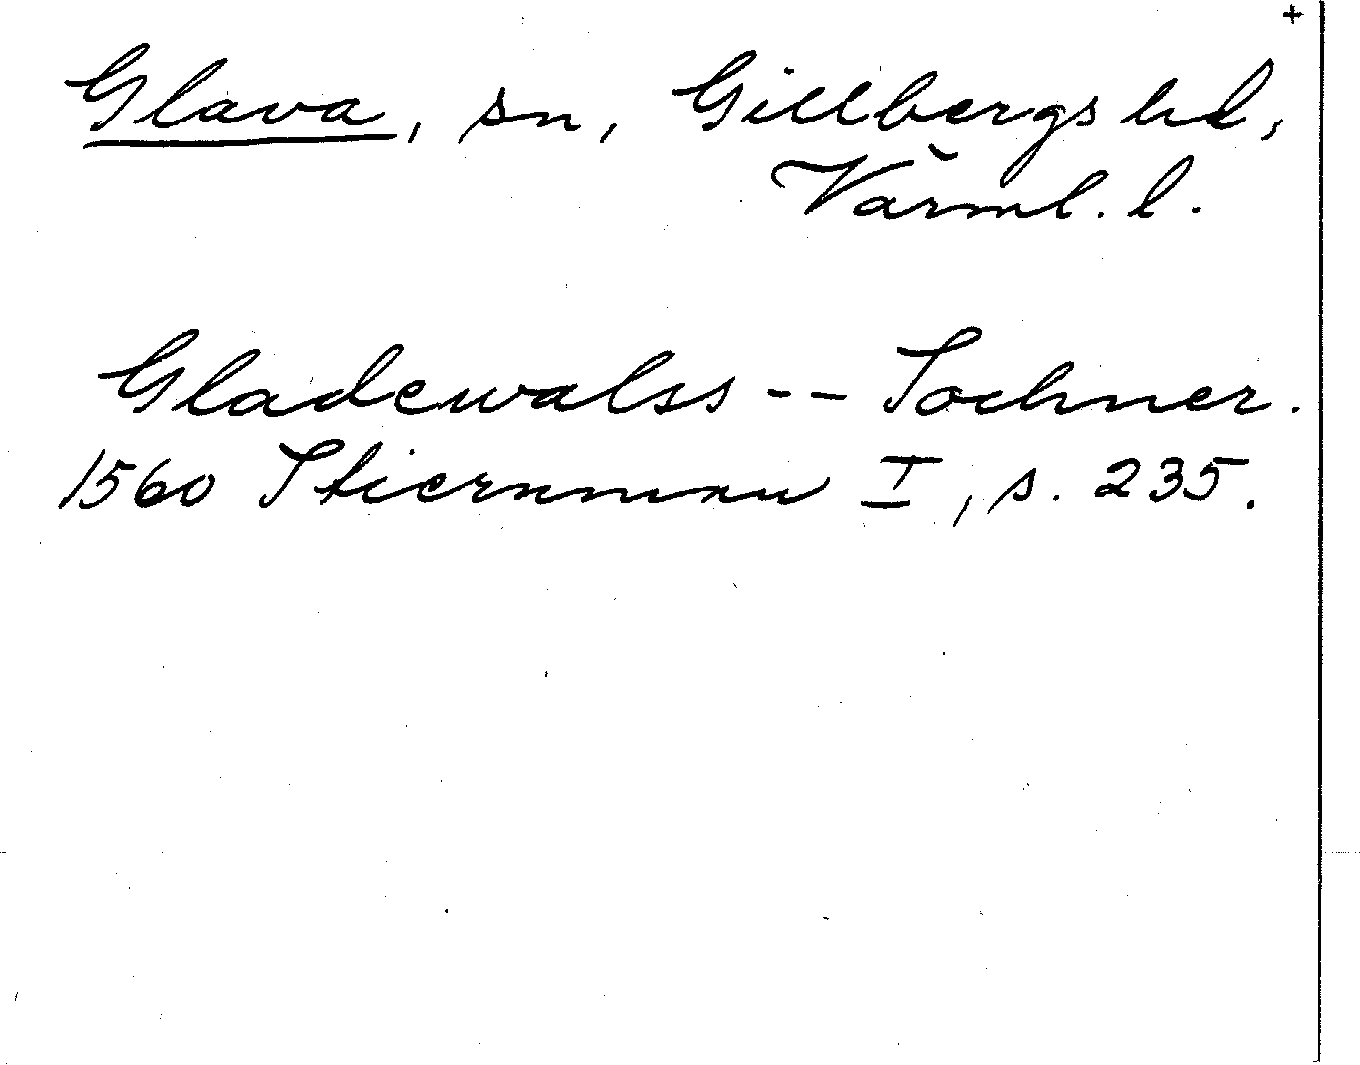 +
Glava, sn, Gillbergs hd,
Värml. l.
Gladewalss -- Sochner.
1560 Stiernman I, s. 235.